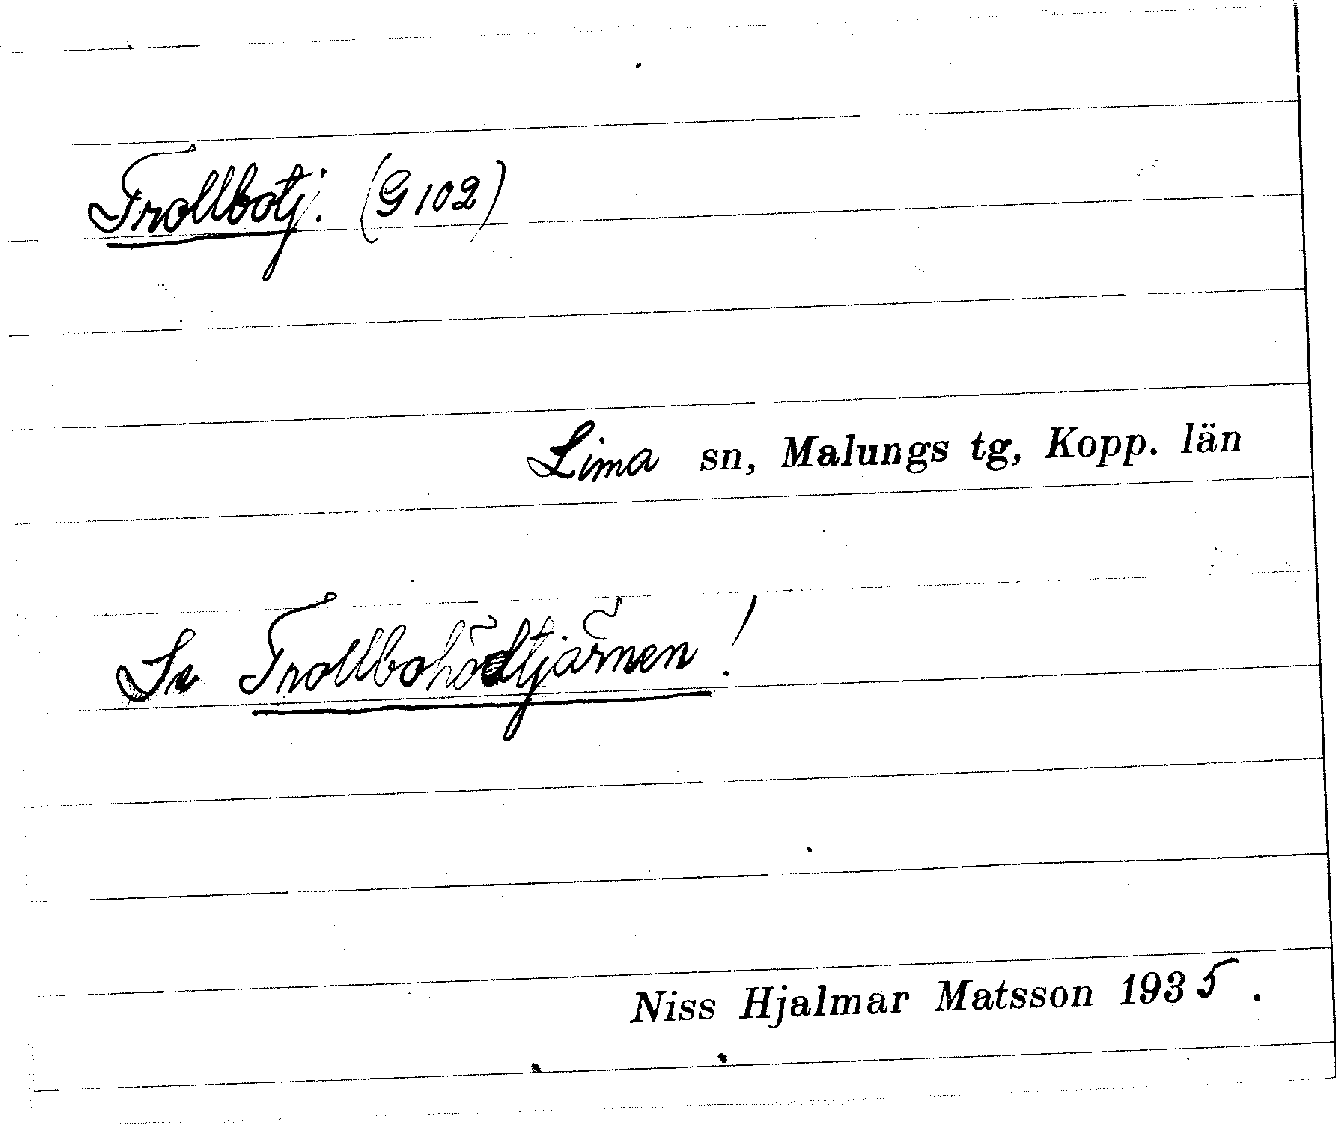 Trollbotj. (G 102)
Lima sn, Malungs tg, Kopp. län
Se Trollbohödtjärnen!
Niss Hjalmar Matsson 1935.